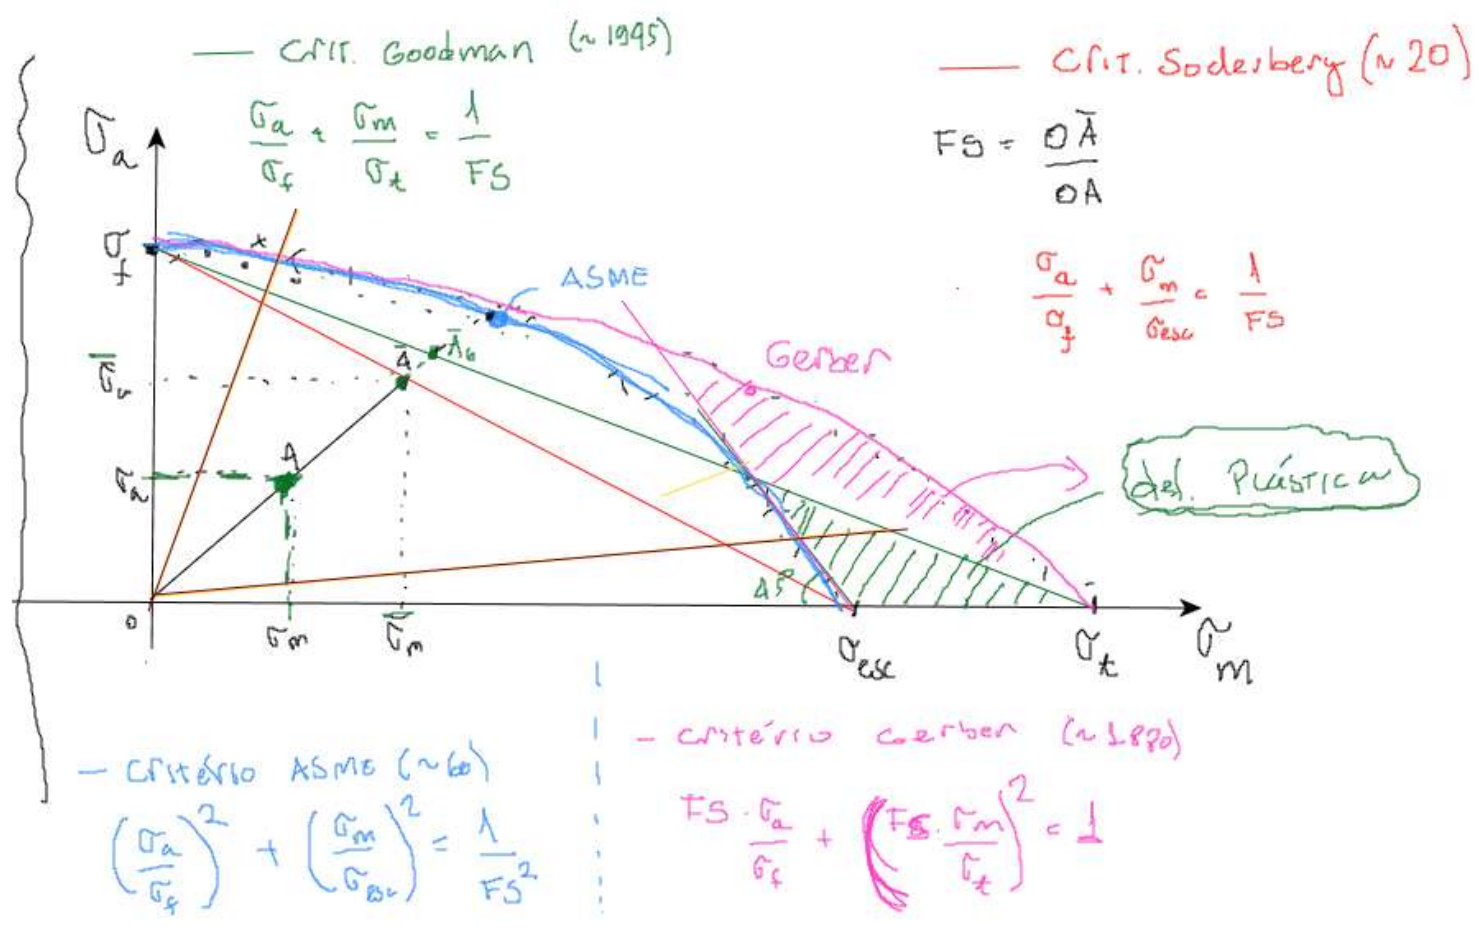 — Crit. Goodman (~1945)
σa/σf + σm/σt = 1/FS
— Crit. Soderberg (~20)
FS = OĀ/OA
σa/σf + σm/σesc = 1/FS
σa
σf
ASME
Gerber
Ā
ĀG
σ̄a
A
σa
def. Plástica
45°
0
σm
σ̄m
σesc
σt
σm
— Critério ASME (~60)
(σa/σf)² + (σm/σesc)² = 1/FS²
- critério Gerber (~1880)
FS · σa/σf + (FS · σm/σt)² = 1